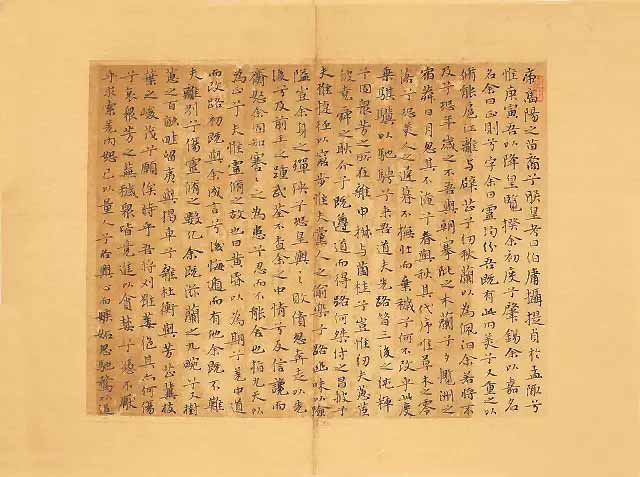 帝高陽之苗裔兮朕皇考曰伯庸攝提貞於孟陬兮
惟庚寅吾以降皇覽揆余初度兮肇錫余以嘉名
名余曰正則兮字余曰靈均紛吾既有此內美兮又重之以
脩能扈江離與辟芷兮紉秋蘭以為佩汩余若將不
及兮恐年歲之不吾與朝搴阰之木蘭兮夕攬洲之
宿莽日月忽其不淹兮春與秋其代序惟草木之零
落兮恐美人之遲暮不撫壯而棄穢兮何不改乎此度
乘騏驥以馳騁兮來吾道夫先路昔三後之純粹
兮固衆芳之所在雜申椒與菌桂兮豈惟紉夫蕙茝
彼堯舜之耿介兮既遵道而得路何桀紂之昌披兮
夫惟捷徑以窘步惟夫黨人之偷樂兮路幽昧以險
隘豈余身之憚殃兮恐皇輿之敗績忽奔走以先
後兮及前王之踵武荃不查余之中情兮反信讒而
齌怒余固知謇謇之為患兮忍而不能舍也指九天以
為正兮夫惟靈脩之故也曰黃昏以為期兮羌中道
而改路初既與余成言兮後悔遁而有他余既不難
夫離別兮傷靈脩之數化余既滋蘭之九畹兮又樹
蕙之百畝畦留夷與揭車兮雜杜衡與芳芷冀枝
葉之峻茂兮願俟時乎吾將刈雖萎絕其亦何傷
兮哀衆芳之蕪穢衆皆競進以貪婪兮憑不厭
乎求索羌內恕己以量人兮各興心而嫉妬忽馳騖以追